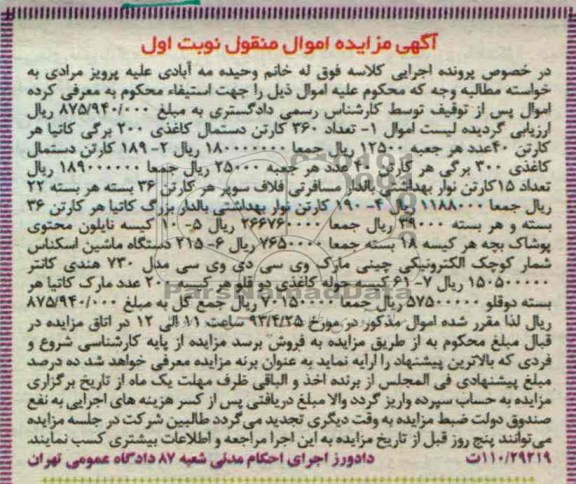 آگهی مزایده اموال منقول نوبت اول
در خصوص پرونده اجرایی کلاسه فوق له خانم وحیده مه آبادی علیه پرویز مرادی به
خواسته مطالبه وجه که محکوم علیه اموال ذیل را جهت استیفاء محکوم به معرفی کرده
اموال پس از توقیف توسط کارشناس رسمی دادگستری به مبلغ ۸۷۵/۹۴۰/۰۰۰ ریال
ارزیابی گردیده لیست اموال ۱- تعداد ۳۶۰ کارتن دستمال کاغذی ۲۰۰ برگی کاتیا هر
کارتن ۴۰عدد هر جعبه ۱۲۵۰۰ ریال جمعا ۱۸۰۰۰۰۰۰۰ ریال ۲- ۱۸۹ کارتن دستمال
کاغذی ۳۰۰ برگی هر کارتن عدد هر جعبه ۲۵۰۰۰ ریال جمعا ۱۸۹۰۰۰۰۰۰ ریال
تعداد ۱۵کارتن نوار بهداشتی بالدار مسافرتی فلاف سوپر هر کارتن ۳۶ بسته هر بسته ۲۲
ریال جمعا ۱۱۸۸۰۰۰۰ ریال ۴- ۱۹۰ کارتن نوار بهداشتی بالدار بزرگ کاتیا هر کارتن ۳۶
بسته و هر بسته ۳۹۰۰۰ ریال جمعا ۲۶۶۷۶۰۰۰۰ ریال ۵- کیسه نایلون محتوی
پوشاک بچه هر کیسه ۱۸ بسته جمعا ۷۶۵۰۰۰۰ ریال ۶- ۲۱۵ دستگاه ماشین اسکناس
شمار کوچک الکترونیکی چینی مارک وی سی دی وی سی مدل ۷۳۰ هندی کانتر
۱۵۰۵۰۰۰۰۰ ریال ۷- ۶۱ کیسه حوله کاغذی دو قلو هر کیسه ۲۰۰ عدد مارک کاتیا هر
بسته دوقلو ۵۷۵۰۰۰۰۰ ریال جمعا ۷۰۱۵۰۰۰۰ ریال جمع کل به مبلغ ۸۷۵/۹۴۰/۰۰۰
ریال لذا مقرر شده اموال مذکور در مورخ ۹۳/۴/۲۵ ساعت ۱۱ الی ۱۲ در اتاق مزایده در
قبال مبلغ محکوم به از طریق مزایده به فروش برسد مزایده از پایه کارشناسی شروع و
فردی که بالاترین پیشنهاد را ارایه نماید به عنوان برنه مزایده معرفی خواهد شد ده درصد
مبلغ پیشنهادی فی المجلس از برنده اخذ و الباقی ظرف مهلت یک ماه از تاریخ برگزاری
مزایده به حساب سپرده واریز گردد والا مبلغ دریافتی پس از کسر هزینه های اجرایی به نفع
صندوق دولت ضبط مزایده به وقت دیگری تجدید می‌گردد طالبین شرکت در جلسه مزایده
می‌توانند پنج روز قبل از تاریخ مزایده به این اجرا مراجعه و اطلاعات بیشتری کسب نمایند.
۱۱۰/۲۹۲۱۹ت دادورز اجرای احکام مدنی شعبه ۸۷ دادگاه عمومی تهران